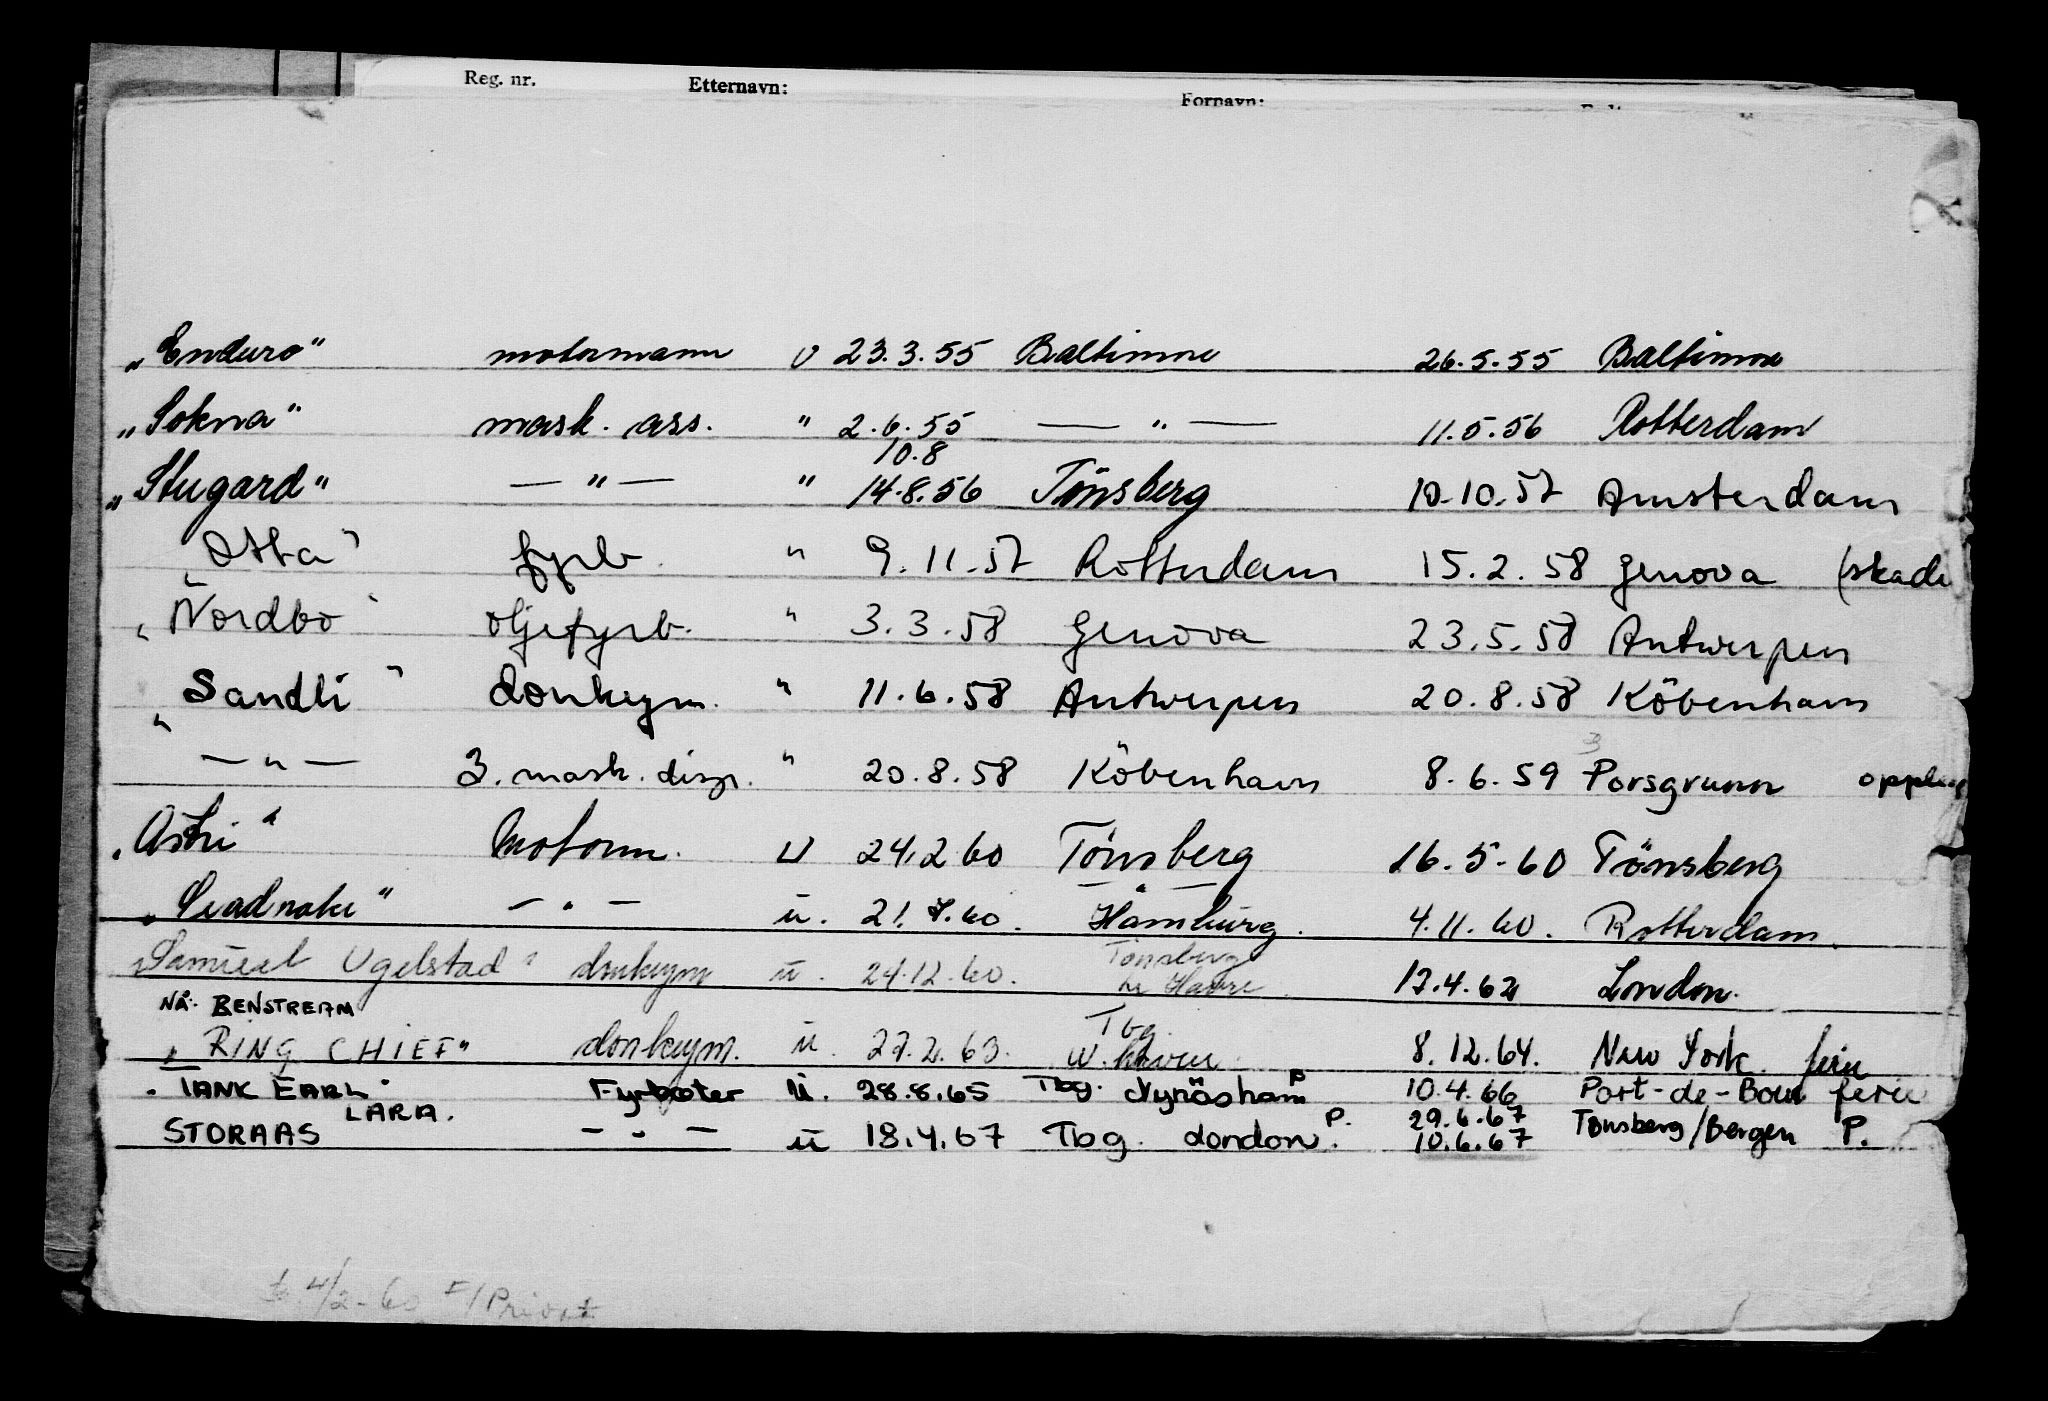 Reg. nr. Etternavn: Fornavn:
„Enduro“ motormann U 23.3.55 Baltimore 26.5.55 Baltimore
„Sokna“ mask. ass. " 2.6.55 — " — 11.5.56 Rotterdam
10.8
„Stugard“ — " — " 14.8.56 Tönsberg 10.10.57 Amsterdam
„Otta" fyrb. " 9.11.57 Rotterdam 15.2.58 Genova (skade
„Nordbo" oljefyrb. " 3.3.58 Genova 23.5.58 Antwerpen
„Sandli" donkeym. " 11.6.58 Antwerpen 20.8.58 Köbenhavn
— " — 3. mask. disp. " 20.8.58 Köbenhavn 8.6.59 Porsgrunn
„Astri" Motorm. U 24.2.60 Tönsberg 16.5.60 Tönsberg
— " —
" — " — u. 21.7.60. Hamburg. 4.11.60. Rotterdam.
„Samuel Ugelstad" donkeym u. 24.12.60. Tönsberg
Le Havre. 17.4.62 London.
NÅ: BENSTREAM
„RING CHIEF" donkeym. u. 27.2.63. Tbg.
W. haven. 8.12.64. New York. ferie
"TANK EARL" Fyrböter u. 28.8.65 Tbg. Nynäshamn P 10.4.66 Port-de-Bouc ferie
LARA. P. 29.6.67
STORAAS — " — u 18.4.67 Tbg. London. 10.6.67 Tönsberg/Bergen P.
4/2-60 F/Privat